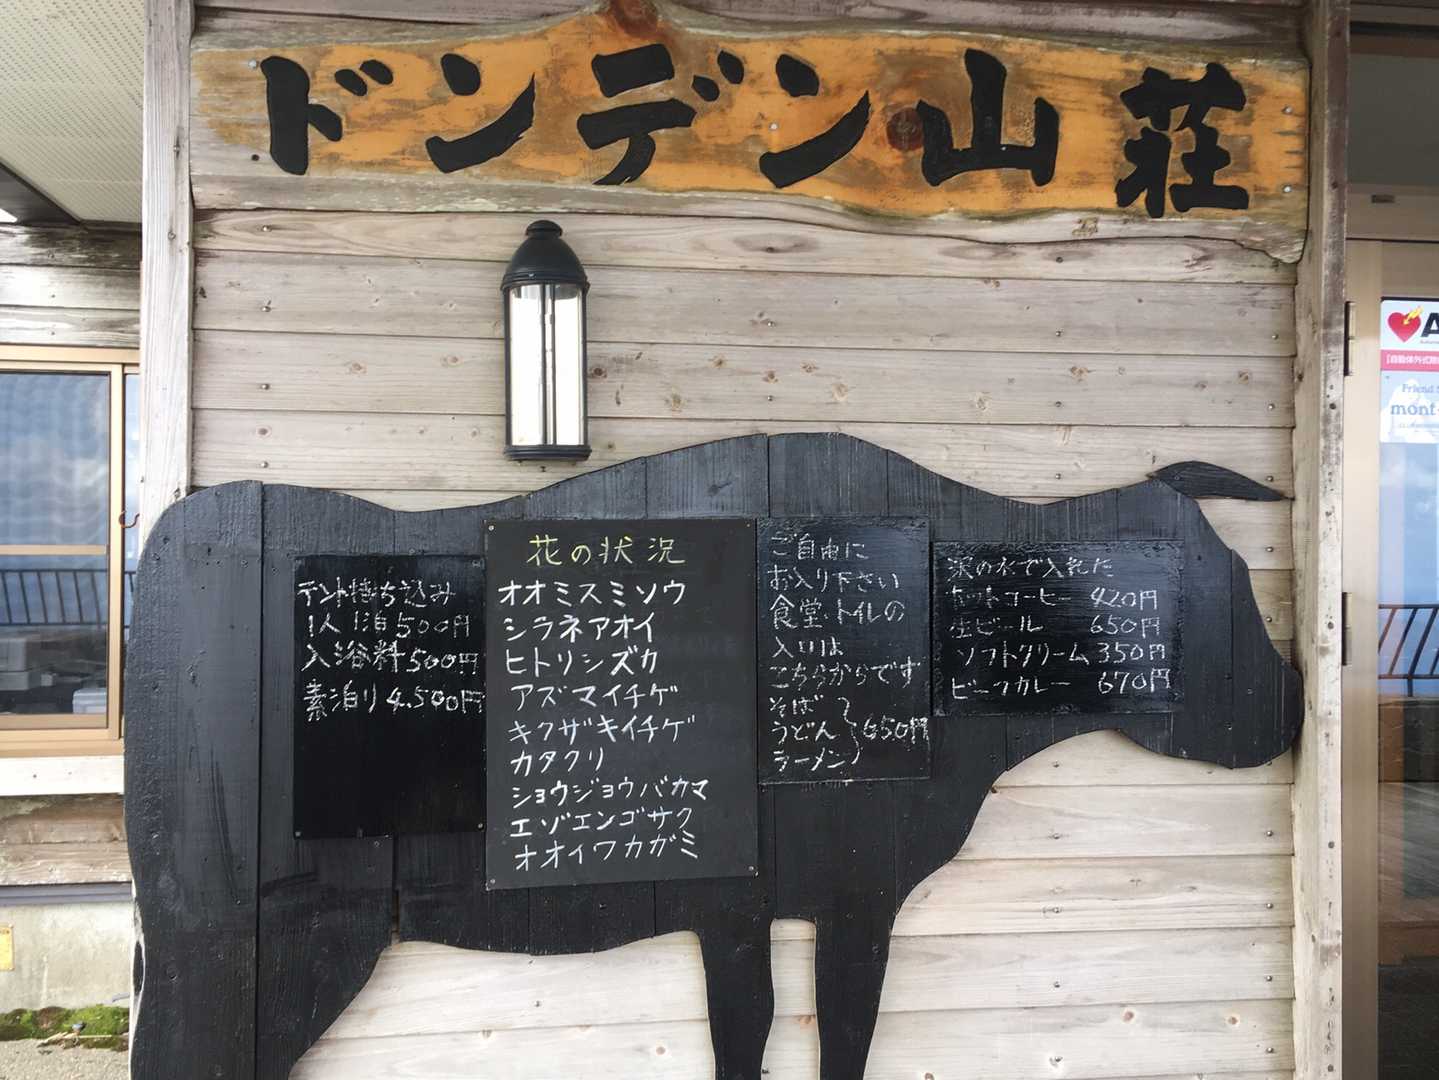 ドンデン山荘
テント持ち込み
1人1泊500円
入浴料500円
素泊り4.500円
花の状況
オオミスミソウ
シラネアオイ
ヒトリシズカ
アズマイチゲ
キクザキイチゲ
カタクリ
ショウジョウバカマ
エゾエンゴサク
オオイワカガミ
ご自由に
お入り下さい
食堂・トイレの
入口は
こちらからです
そば
うどん 650円
ラーメン
沢の水で入れた
ホットコーヒー 420円
生ビール 650円
ソフトクリーム 350円
ビーフカレー 670円
A
Friend
mont